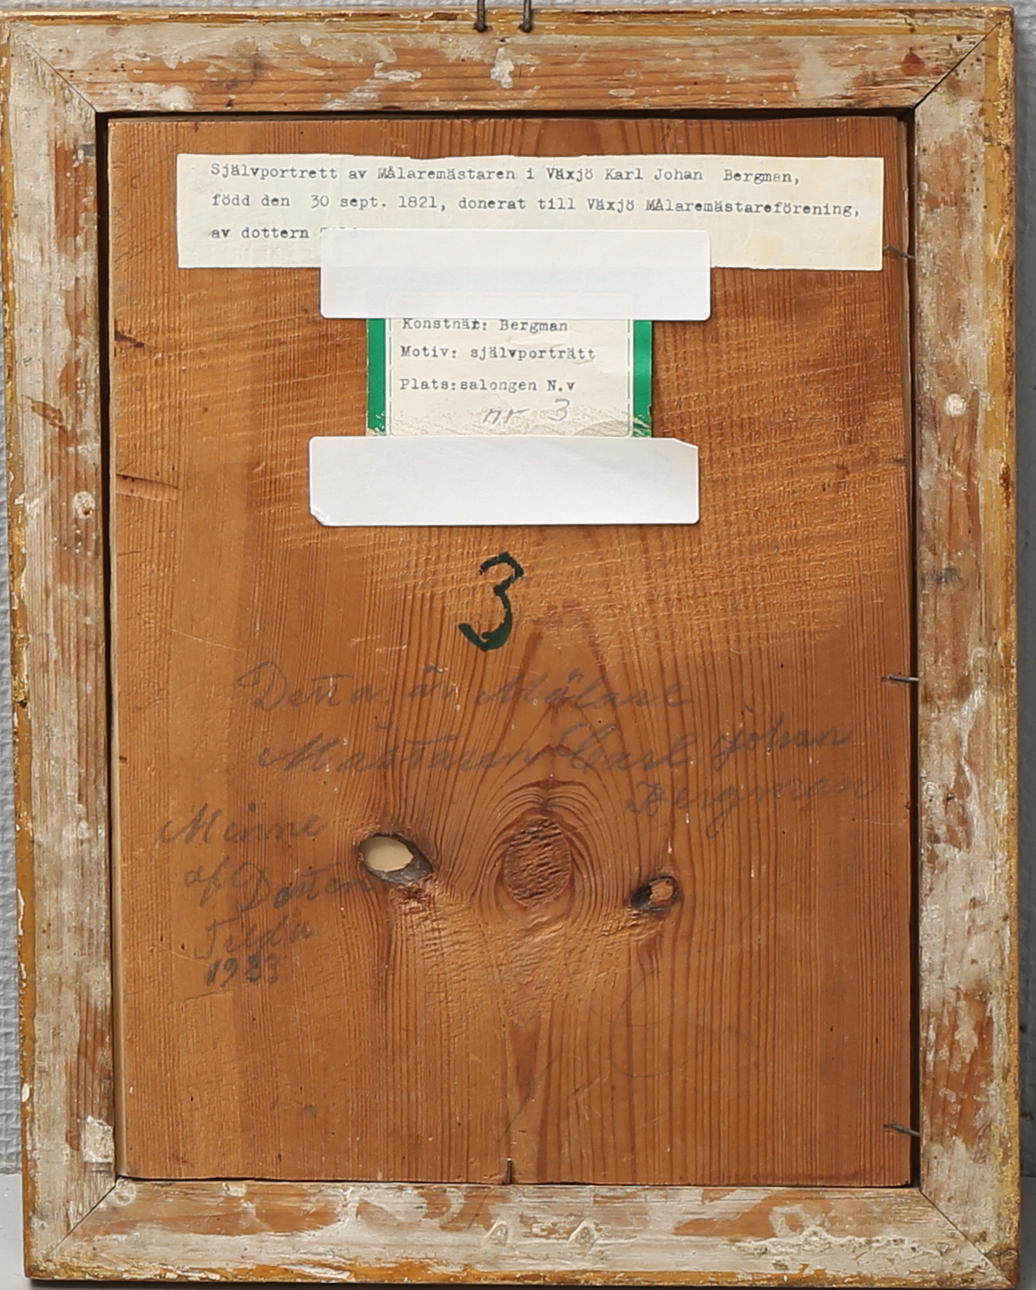 Självportrett av Målaremästaren i Växjö Karl Johan Bergman,
född den 30 sept. 1821, donerat till Växjö Målaremästareförening,
av dottern
Konstnär: Bergman
Motiv: självporträtt
Plats:salongen N.v
nr 3
3
Detta är
Carl Johan
Bergman
Minne
af Dottern
Tilda
1933